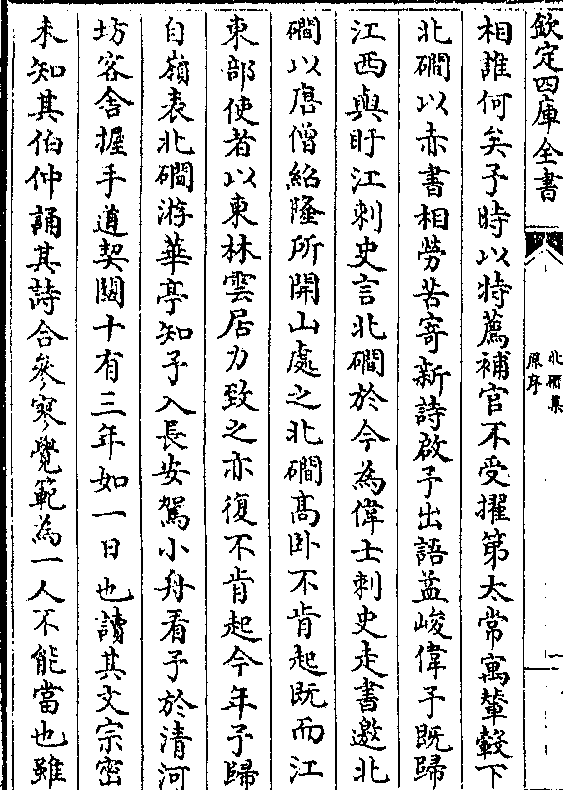 欽定四庫全書
北磵集
原序
一
相誰何矣予時以特薦補官不受擢第太常寓輦轂下
北磵以赤書相勞苦寄新詩啟予出語益峻偉予既歸
江西與盱江刺史言北磵於今為偉士刺史走書邀北
磵以唐僧紹隆所開山處之北磵高卧不肯起既而江
東部使者以東林雲居力致之亦復不肯起今年予歸
自嶺表北磵游華亭知予入長安駕小舟看予於清河
坊客舎握手道契闊十有三年如一日也讀其文宗密
未知其伯仲誦其詩合參寥覺範為一人不能當也雖